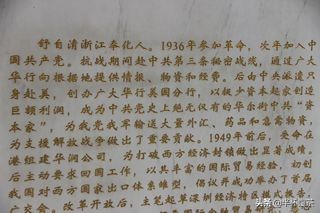 舒自清浙江奉化人。1936年参加革命，次年加入中
国共产党。抗战期间赴中共第三条秘密战线，通过广大
华行向根据地提供情报、物资和经费。后由中央派遣只
身赴美，创办广大华行美国分行，以极少资本起家创造
巨额利润，成为中共党史上绝无仅有的华尔街中共"资
本家"，为我党我军输送大量外汇、药品和急需物资，
为支援解放战争做出了重要贡献。1949年前后，受命在
港组建华润公司，为打破西方经济封锁做出显著成绩，
后主动要求回国工作，以其丰富的国际贸易经验，初创
我国对西方国家出口体系雏型，倡议开成功举办了首届
交会。改革开放后，主笔赴草深圳经济特区模式报告，
头条@华怀余示